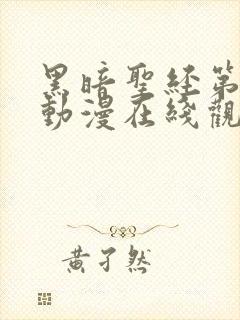 黑暗聖經第
動漫在綫觀
黃孑然